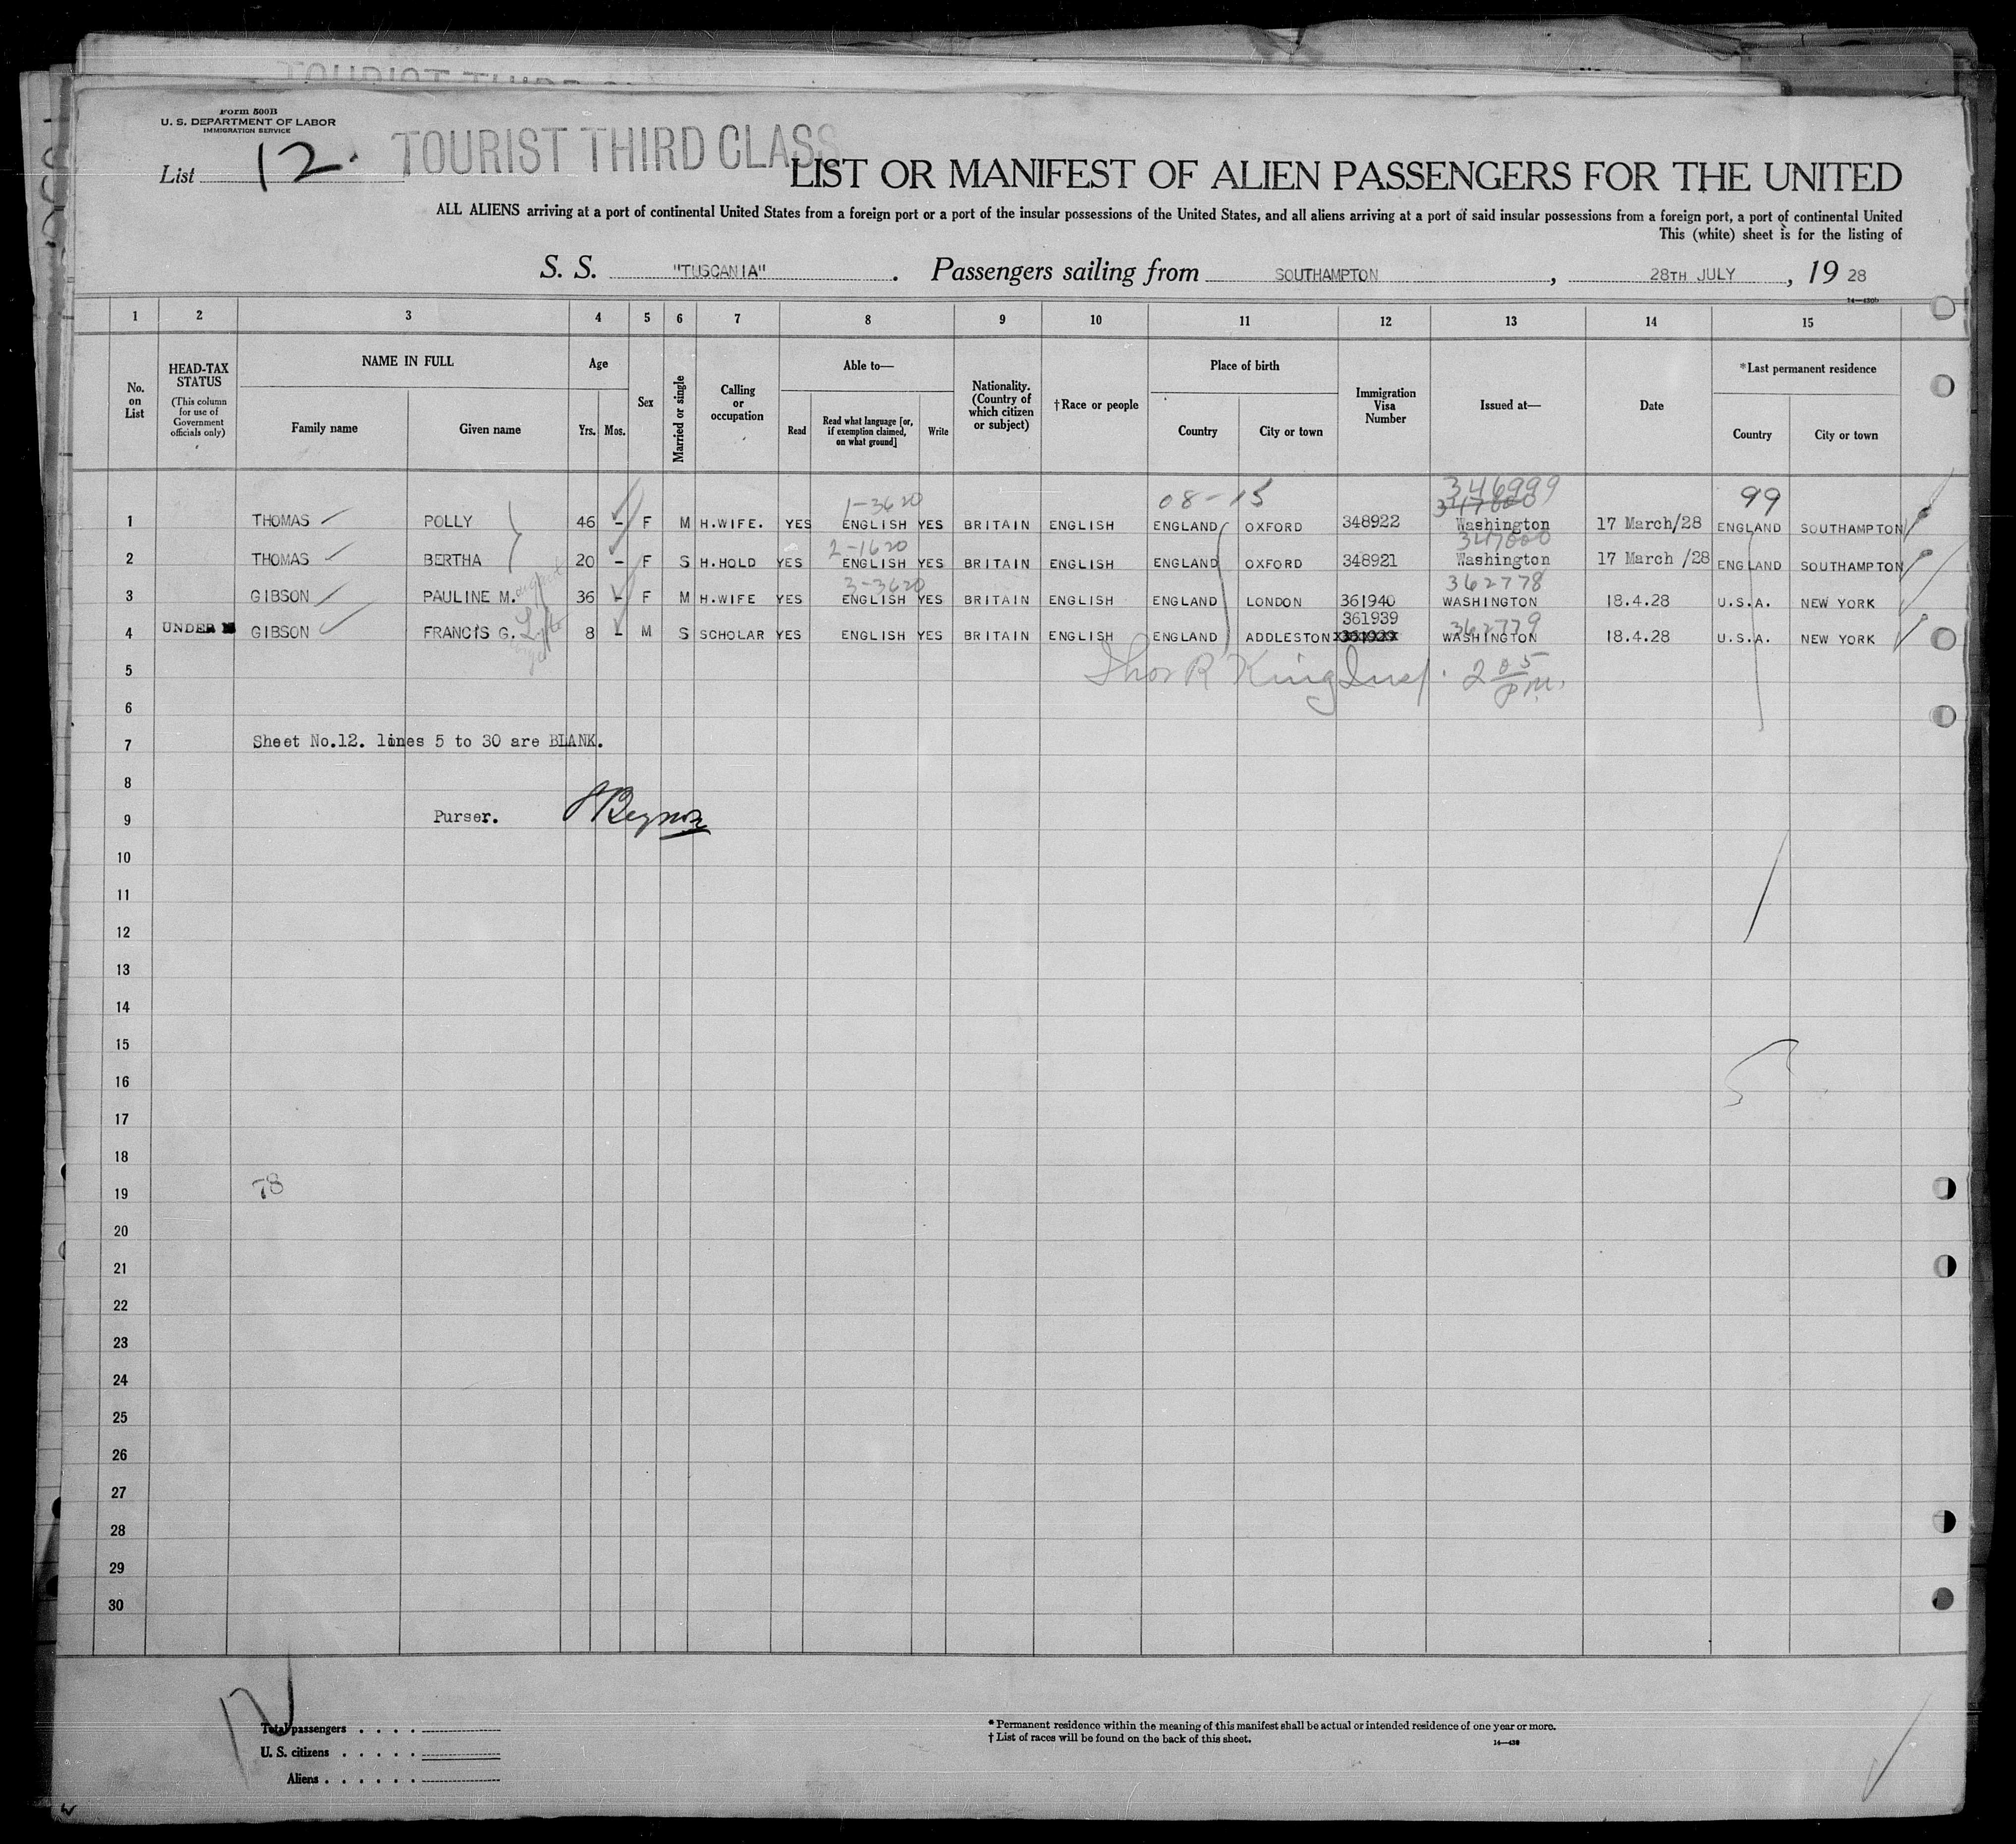 TOURIST THIRD
Form 500B
U. S. DEPARTMENT OF LABOR
IMMIGRATION SERVICE
List 12.
TOURIST THIRD CLASS
LIST OR MANIFEST OF ALIEN PASSENGERS FOR THE UNITED
ALL ALIENS arriving at a port of continental United States from a foreign port or a port of the insular possessions of the United States, and all aliens arriving at a port of said insular possessions from a foreign port, a port of continental United
This (white) sheet is for the listing of
S. S. "TUSCANIA" . Passengers sailing from SOUTHAMPTON , 28TH JULY , 19 28
14—430b
1 2 3 4 5 6 7 8 9 10 11 12 13 14 15
No. on List
HEAD-TAX STATUS
(This column for use of Government officials only)
NAME IN FULL
Family name Given name
Age
Yrs. Mos.
Sex
Married or single
Calling or occupation
Able to—
Read
Read what language [or, if exemption claimed, on what ground]
Write
Nationality. (Country of which citizen or subject)
†Race or people
Place of birth
Country City or town
Immigration Visa Number
Issued at—
Date
*Last permanent residence
Country City or town
1-3620 08-15 346999 99
347000
1 THOMAS POLLY 46 - F M H.WIFE. YES ENGLISH YES BRITAIN ENGLISH ENGLAND OXFORD 348922 Washington 17 March/28 ENGLAND SOUTHAMPTON
2-1620 347000
2 THOMAS BERTHA 20 - F S H.HOLD YES ENGLISH YES BRITAIN ENGLISH ENGLAND OXFORD 348921 Washington 17 March /28 ENGLAND SOUTHAMPTON
3-3620 362778
3 GIBSON PAULINE M. 36 - F M H.WIFE YES ENGLISH YES BRITAIN ENGLISH ENGLAND LONDON 361940 WASHINGTON 18.4.28 U.S.A. NEW YORK
361939 362779
4 UNDER GIBSON FRANCIS G. 8 - M S SCHOLAR YES ENGLISH YES BRITAIN ENGLISH ENGLAND ADDLESTON WASHINGTON 18.4.28 U.S.A. NEW YORK
5 Thos R King Insp. 2 05 P.M.
6
7 Sheet No.12. lines 5 to 30 are BLANK.
8
9 Purser.
10
11
12
13
14
15
16
17
18
19 78
20
21
22
23
24
25
26
27
28
29
30
Total passengers . . . .
U. S. citizens . . . . .
Aliens . . . . . .
* Permanent residence within the meaning of this manifest shall be actual or intended residence of one year or more.
† List of races will be found on the back of this sheet.
14—430